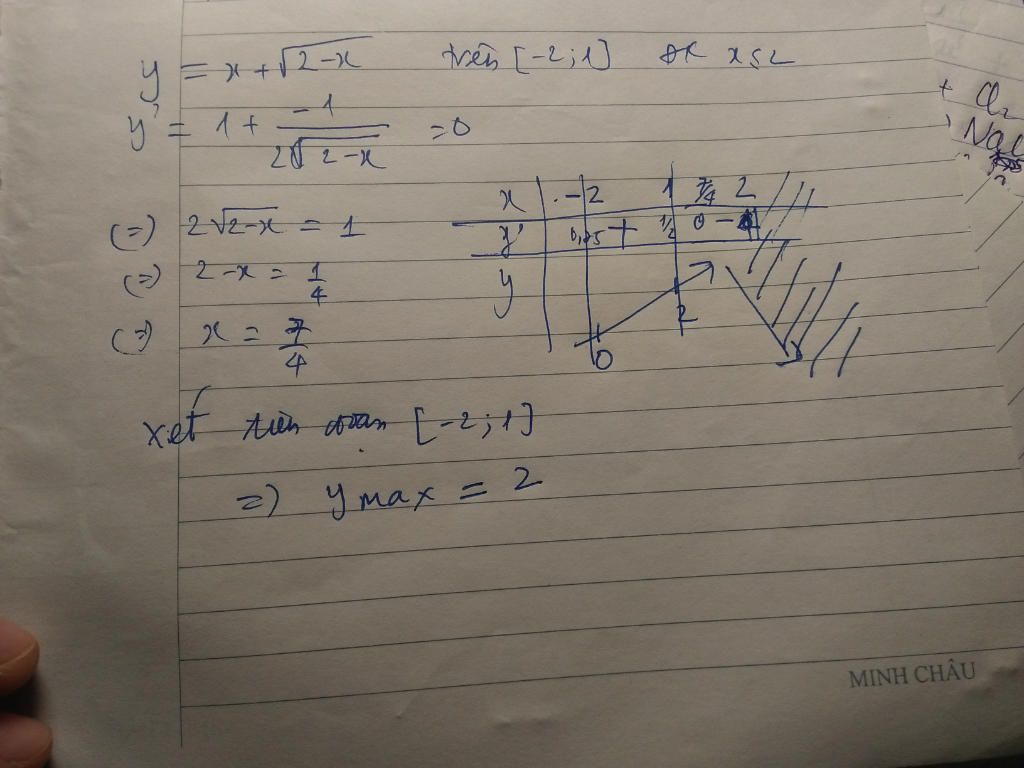 y = x + √2-x trên [-2;1] ĐK x≤2
y' = 1 + -1/2√2-x = 0
(=) 2√2-x = 1
(=) 2-x = 1/4
(=) x = 7/4
x -2 1 7/4 2
y' + 1/2 0 -
y 0 2
xét trên đoạn [-2;1]
=) y max = 2
MINH CHÂU